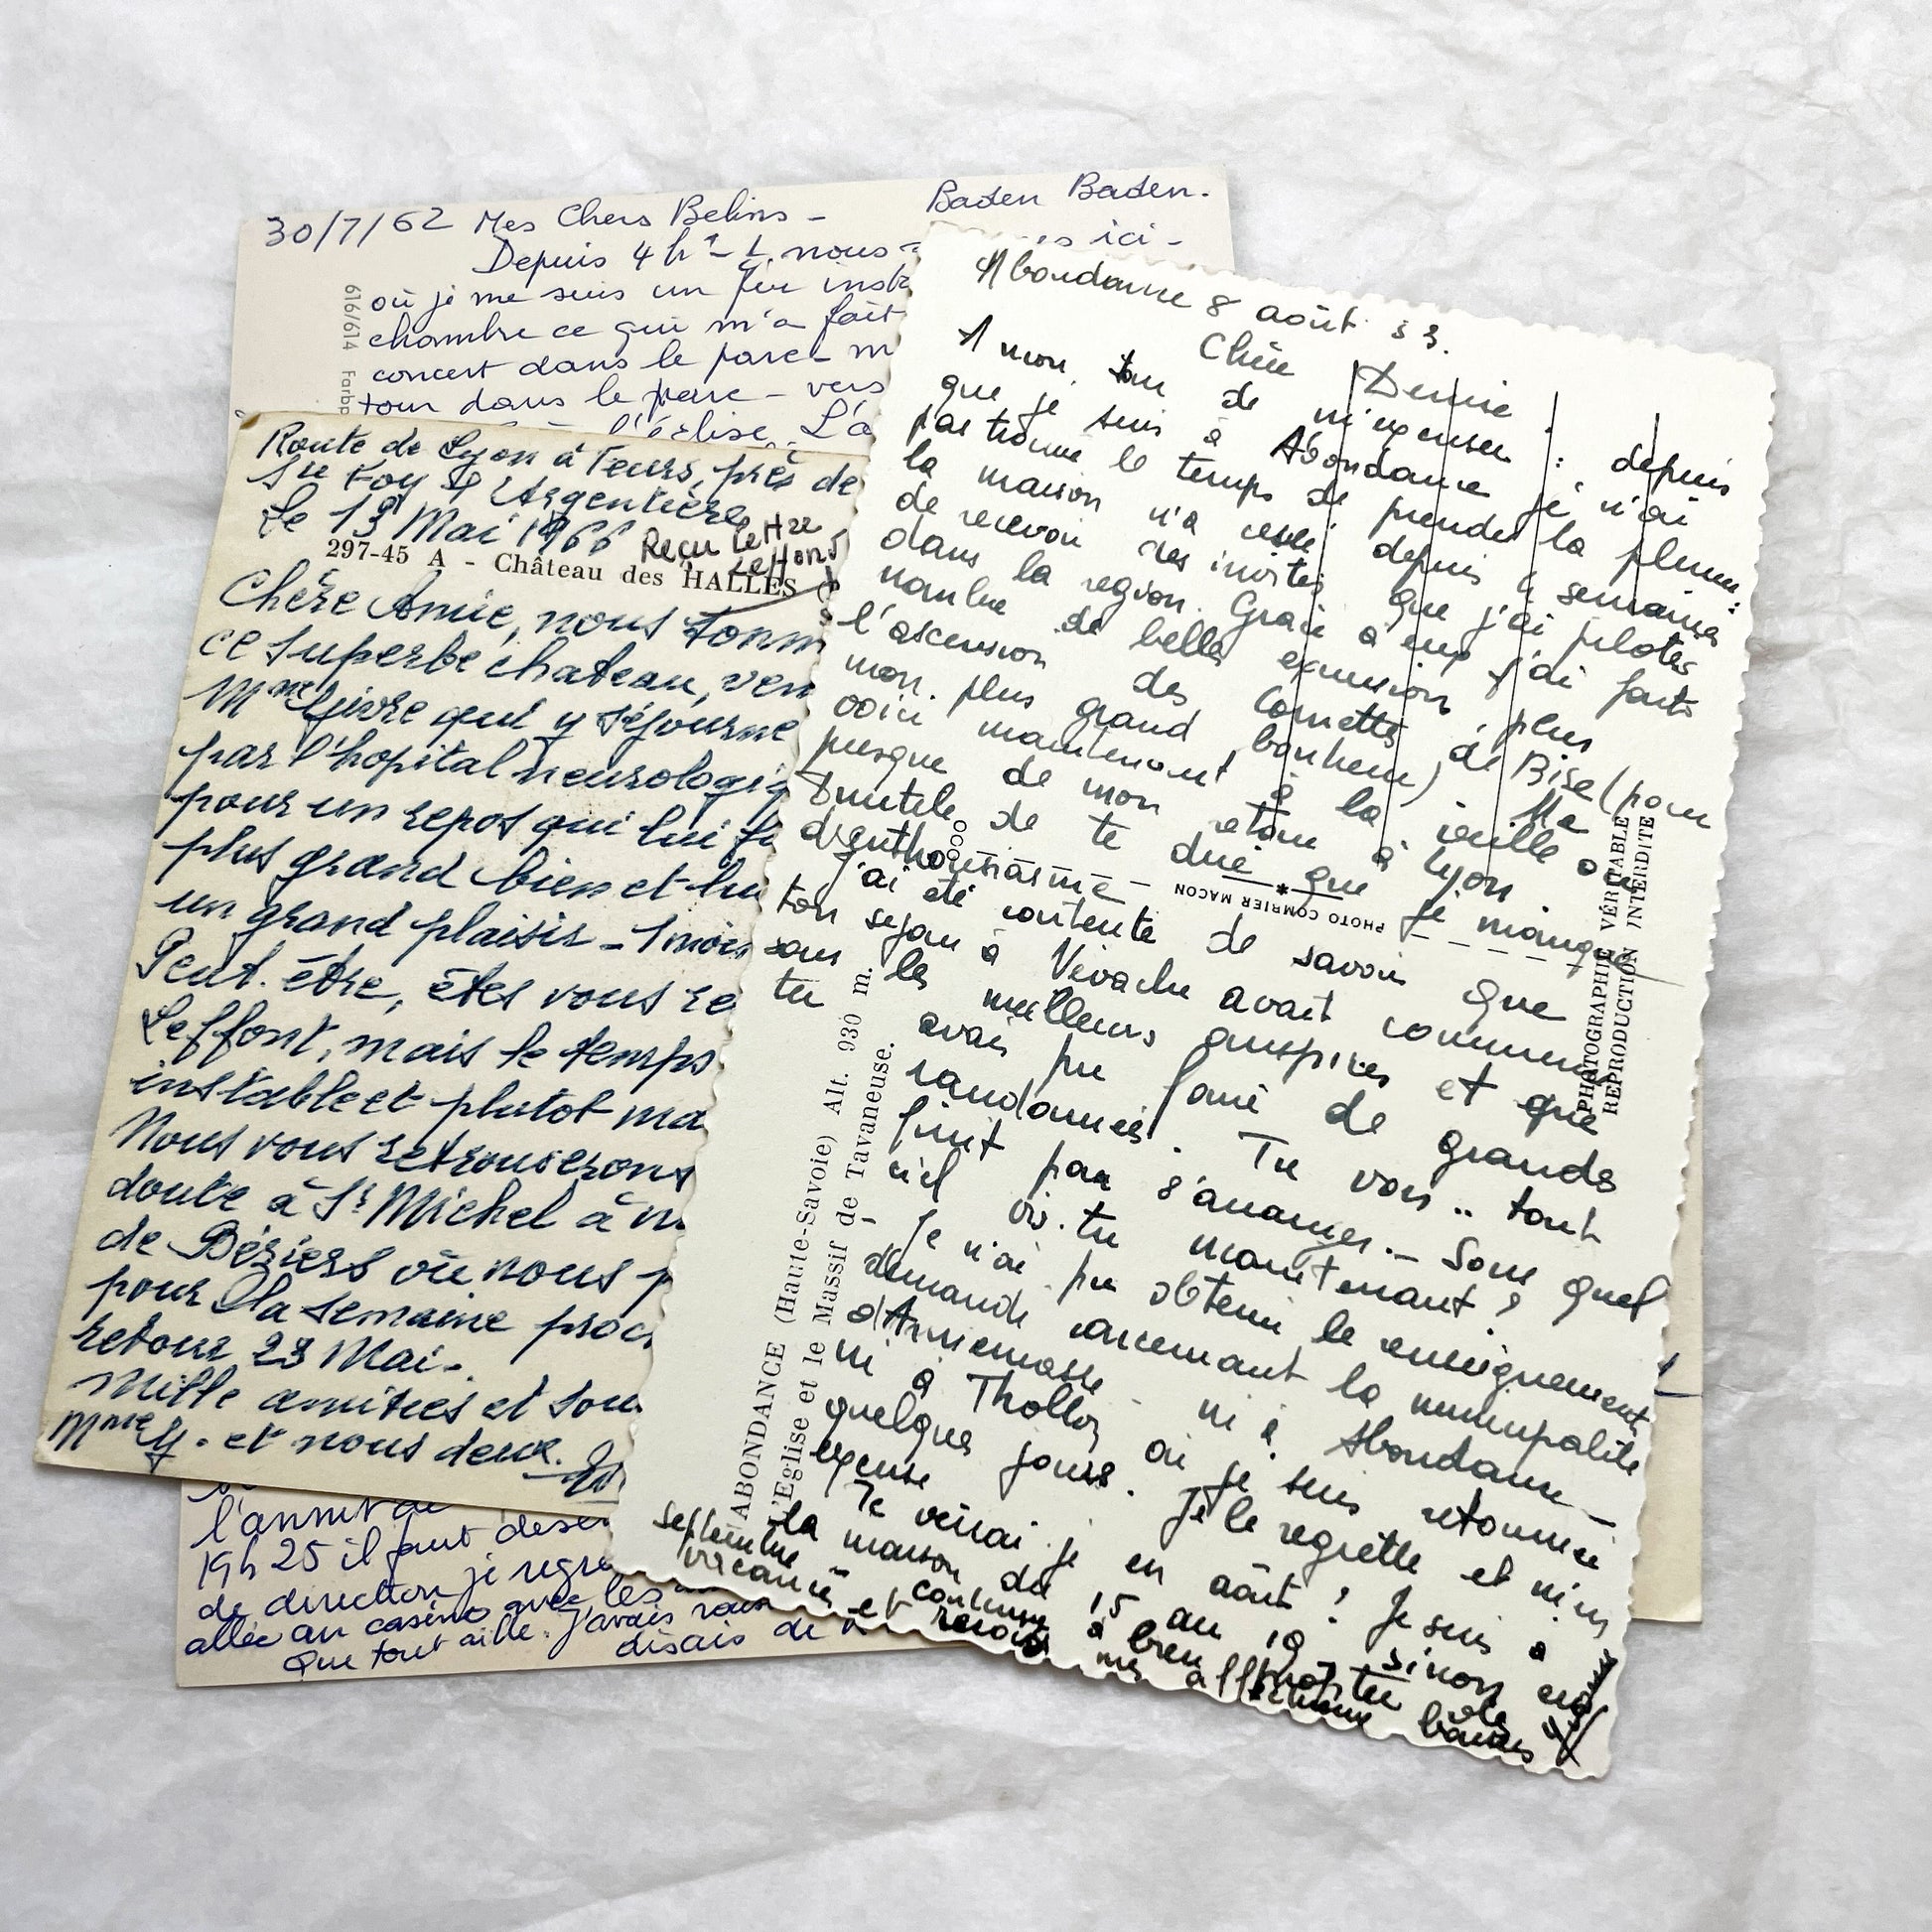 30/7/62 Mes Chers Belins - Baden Baden.
Depuis 4 h nous ici -
où je me suis un peu
chambre ce qui m'a fait
concert dans le parc -
tour dans le parc - vers
l'église. L'a
616/614 Farbp
l'
19h 25 il faut
de direction je
allée au casino avec les
Que tout aille. J'avais
disais de
Route de Lyon à Feurs, près de
Ste Foy l'Argentière
Le 13 Mai 1966 Reçu Lettre
Leffont
297-45 A - Château des HALLES
Chère Amie, nous
ce superbe chateau,
Mme qui y séjourne
par l'hopital
pour un repos qui lui
plus grand bien et lui
un grand plaisir - 1 mois
Peut.être, êtes vous
Leffont, mais le temps
instable et plutot
Nous vous retrouverons
doute à St Michel à
de Béziers où nous
pour la semaine
retour 23 Mai -
Mille amitiés et
Mme G. et nous deux.
Abondance 8 août 53.
Chère Denise
A mon tour de m'excuser : depuis
que je suis à Abondance je n'ai
pas trouvé le temps de prendre la plume :
la maison n'a cessé depuis 4 semaines
de recevoir des invités que j'ai pilotés
dans la region. Grace à eux j'ai fait
nombre de belles excursions, plus
l'ascension des Cornettes de Bise (pour
mon plus grand bonheur). Me
voici maintenant à la veille ou
presque de mon retour à Lyon.
Inutile de te dire que je manque
d'enthousiasme -
J'ai été contente de savoir que
ton sejour à avait commencé
sous les meilleurs auspices et que
tu avais pu faire de grandes
randonnées. Tu vois .. tout
finit par s'arranger. - Sous quel
ciel vis.tu maintenant ?
- Je n'ai pu obtenir le renseignement
demandé concernant la municipalité
d'Annemasse - ni à Abondance -
ni à Thollon où je suis retournée
quelques jours. Je le regrette et m'en
excuse
Te verrai.je en août ? Je suis à
la maison du 15 au 19 sinon en
septembre continue à bien profiter des
vacances et reçois mes affectueux baisers
PHOTO COMBIER MACON
PHOTOGRAPHIE VÉRITABLE
REPRODUCTION INTERDITE
ABONDANCE (Haute-Savoie) Alt. 930 m.
L'Eglise et le Massif de Tavaneuse.